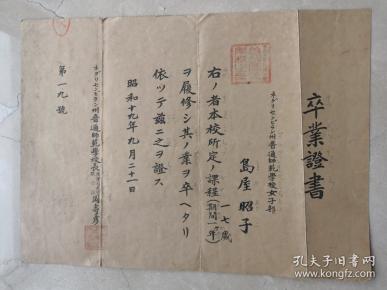 卒業證書
ネグリセンビラン州普通師範學校女子部
島屋昭子
一七歳
右ノ者本校所定ノ課程(期間一年)
ヲ履修シ其ノ業ヲ卒ヘタリ
依ッテ茲ニ之ヲ證ス
昭和十九年九月二十一日
ネグリセンビラン州普通師範學校長
第一九號
孔夫子旧书网